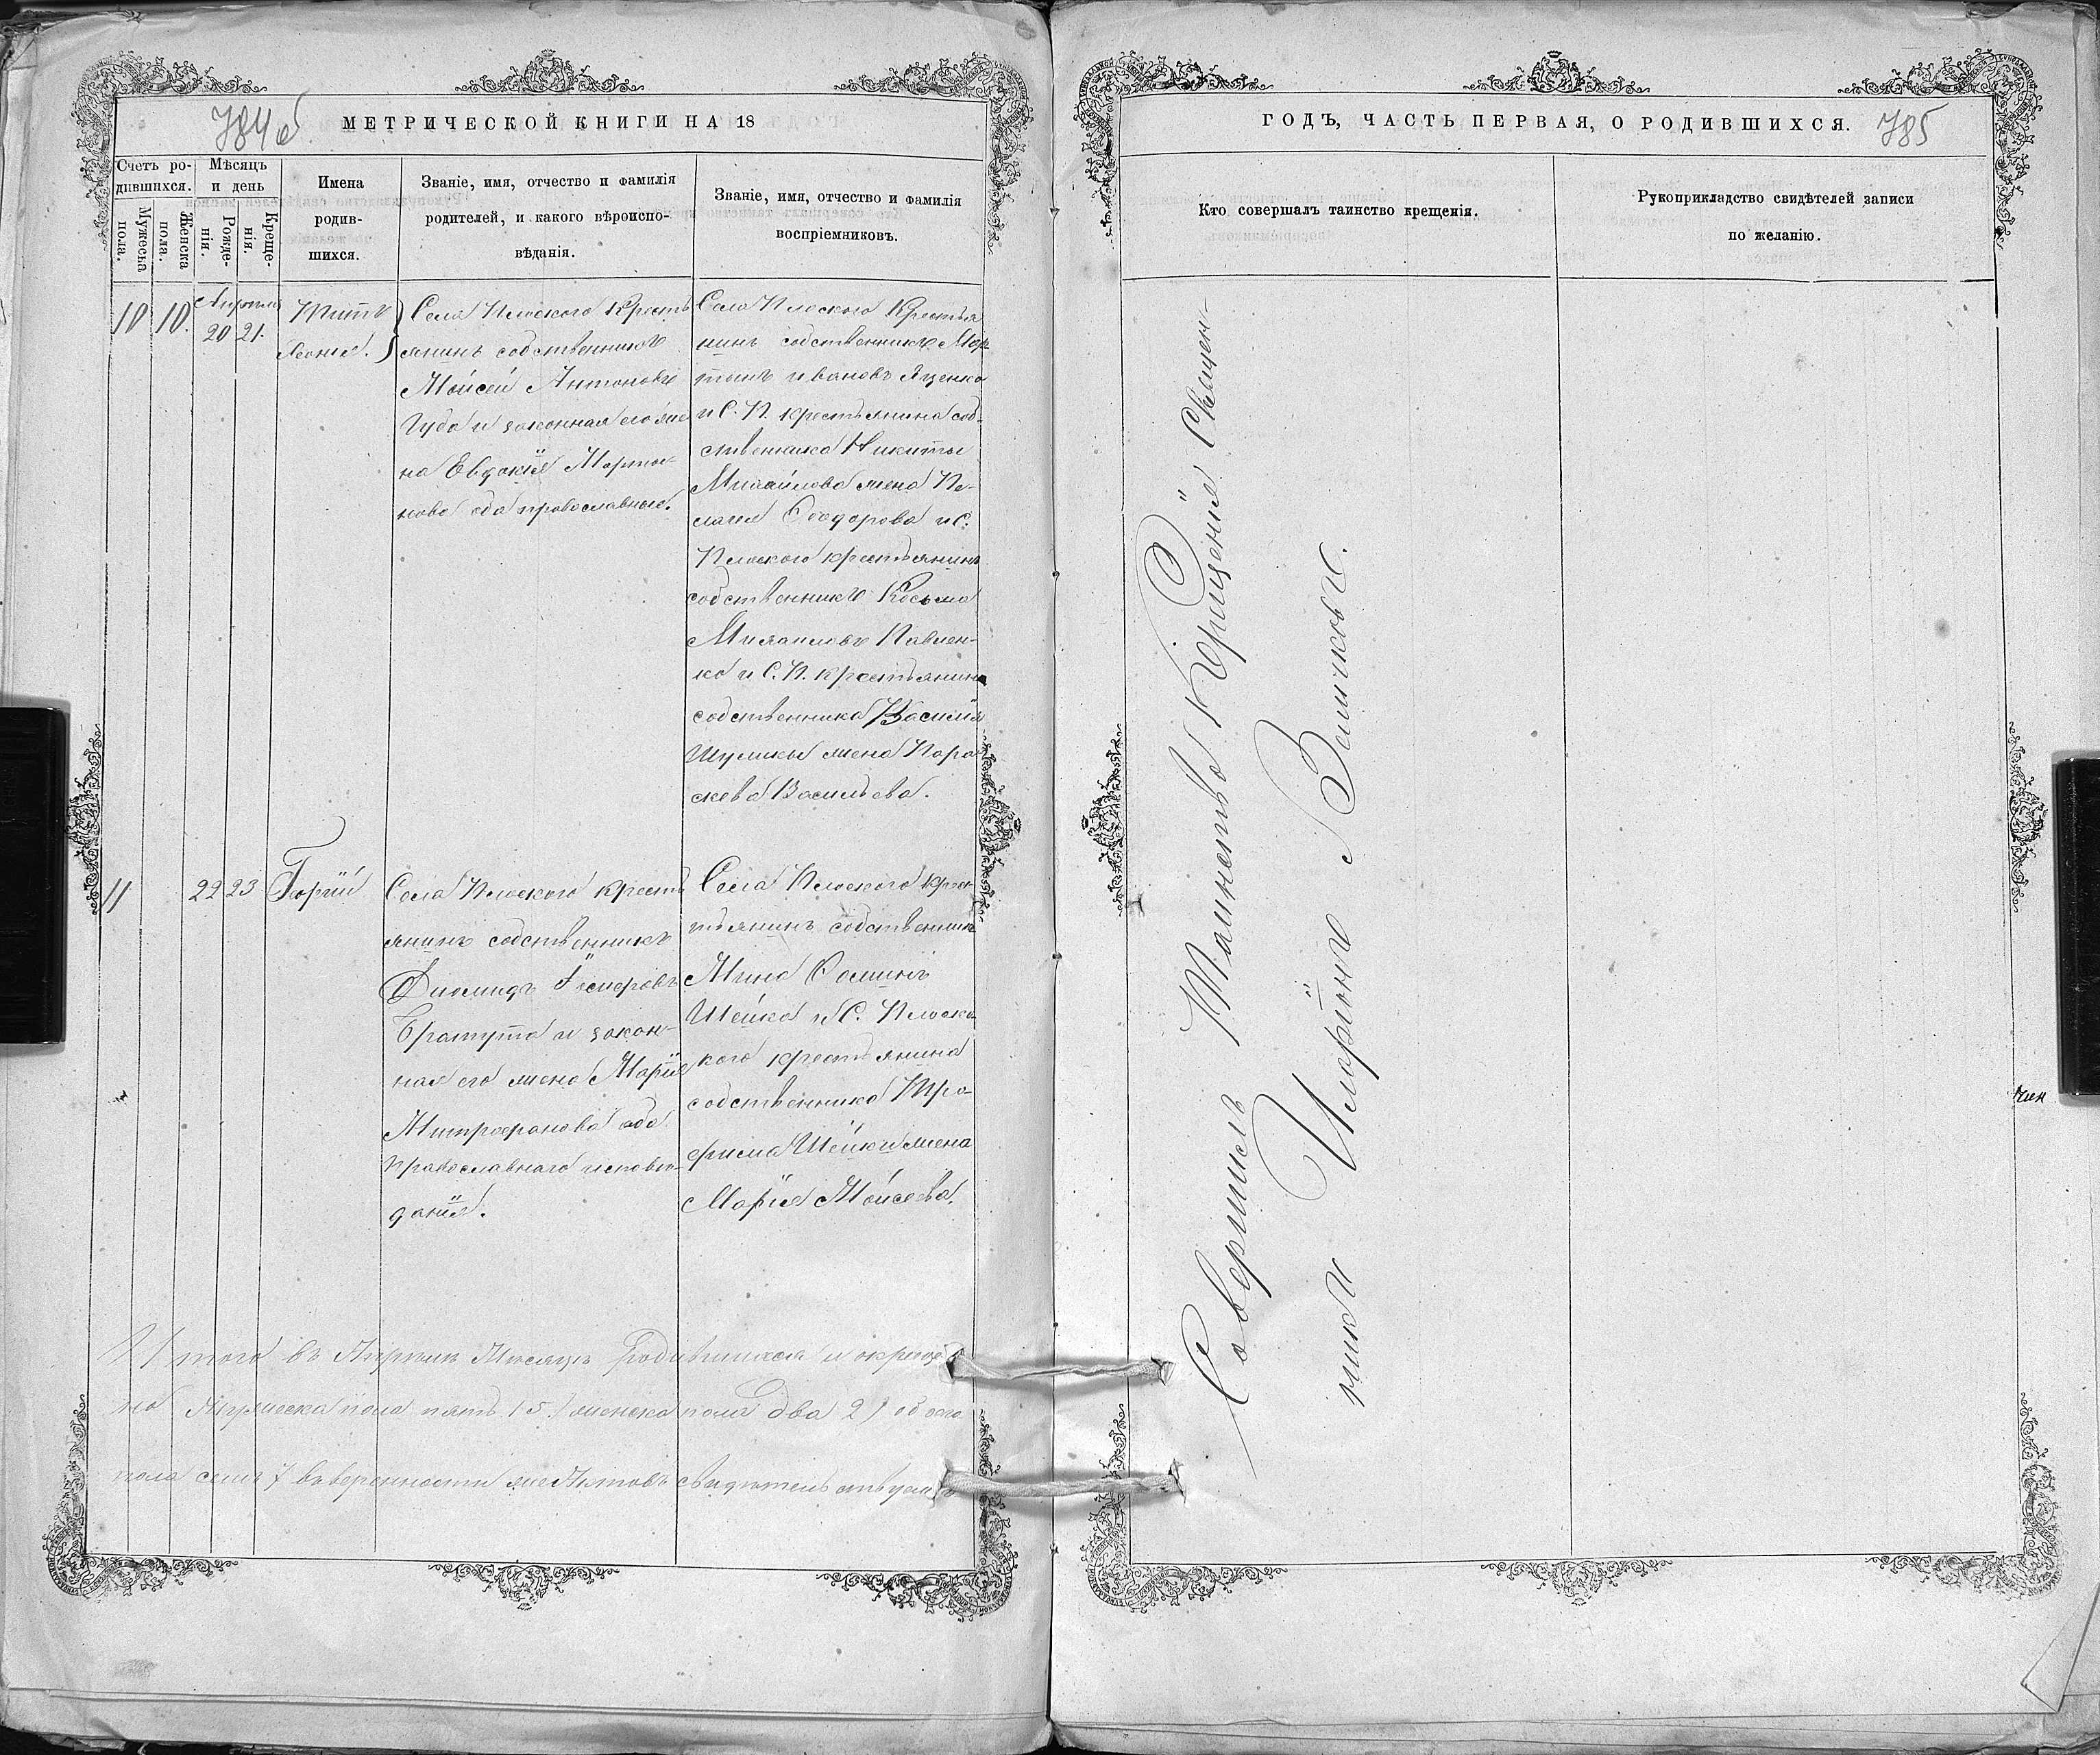 784 об
МЕТРИЧЕСКОЙ КНИГИ НА 18
Счетъ ро-
дившихся.
Мужеска
пола.
Женска
пола.
Мѣсяцъ
и день
Рожде-
нія.
Креще-
нія.
Имена
родив-
шихся.
Званіе, имя, отчество и фамилія
родителей, и какого вѣроиспо-
вѣданія.
Званіе, имя, отчество и фамилія
воспріемниковъ.
10 10. Апрѣля
20 21.
Титъ
Хеонія.
Села Плоского Кресть
янинъ собственникъ
Мойсей Антоновъ
Чуба и законная его же
на Евдокія Марты-
нова оба православные.
Села Плоского Крестья
нинъ собственникъ Мар
тынъ Ивановъ Яценко
и С. П. крестьянина соб-
ственника Никиты
Михайлова жена Пе-
лагея Феодорова и С.
Плоского крестьянинъ
собственникъ Косьма
Михаиловъ Павлен-
ко и С. П. крестьянина
собственника Василія
Шулики жена Пара
скева Васильева.
11 22 23 Георгій
Села Плоского кресть
янинъ собственникъ
Диомидъ
Братута и закон-
ная его жена Марія
Митрофанова оба
православнаго исповѣ-
данія.
Села Плоского крес-
тьянинъ собственникъ
Мина Фоминъ
Шейка и С. Плоско
кого крестьянина
собственника Тро-
фима Шейки жена
Марія Мойсеева.
Итого въ Апрѣлѣ Мѣсяцѣ родившихся и окреще
но Мужеска пола пять (5) женска пола два 2) обоего
пола семь 7 въ верности же Актовъ свидѣтельствуемъ
785
ГОДЪ, ЧАСТЬ ПЕРВАЯ, О РОДИВШИХСЯ.
Кто совершалъ таинство крещенія.
Рукоприкладство свидѣтелей записи
по желанію.
Совершилъ Таинство Крещенія Священ-
никъ Иларіонъ